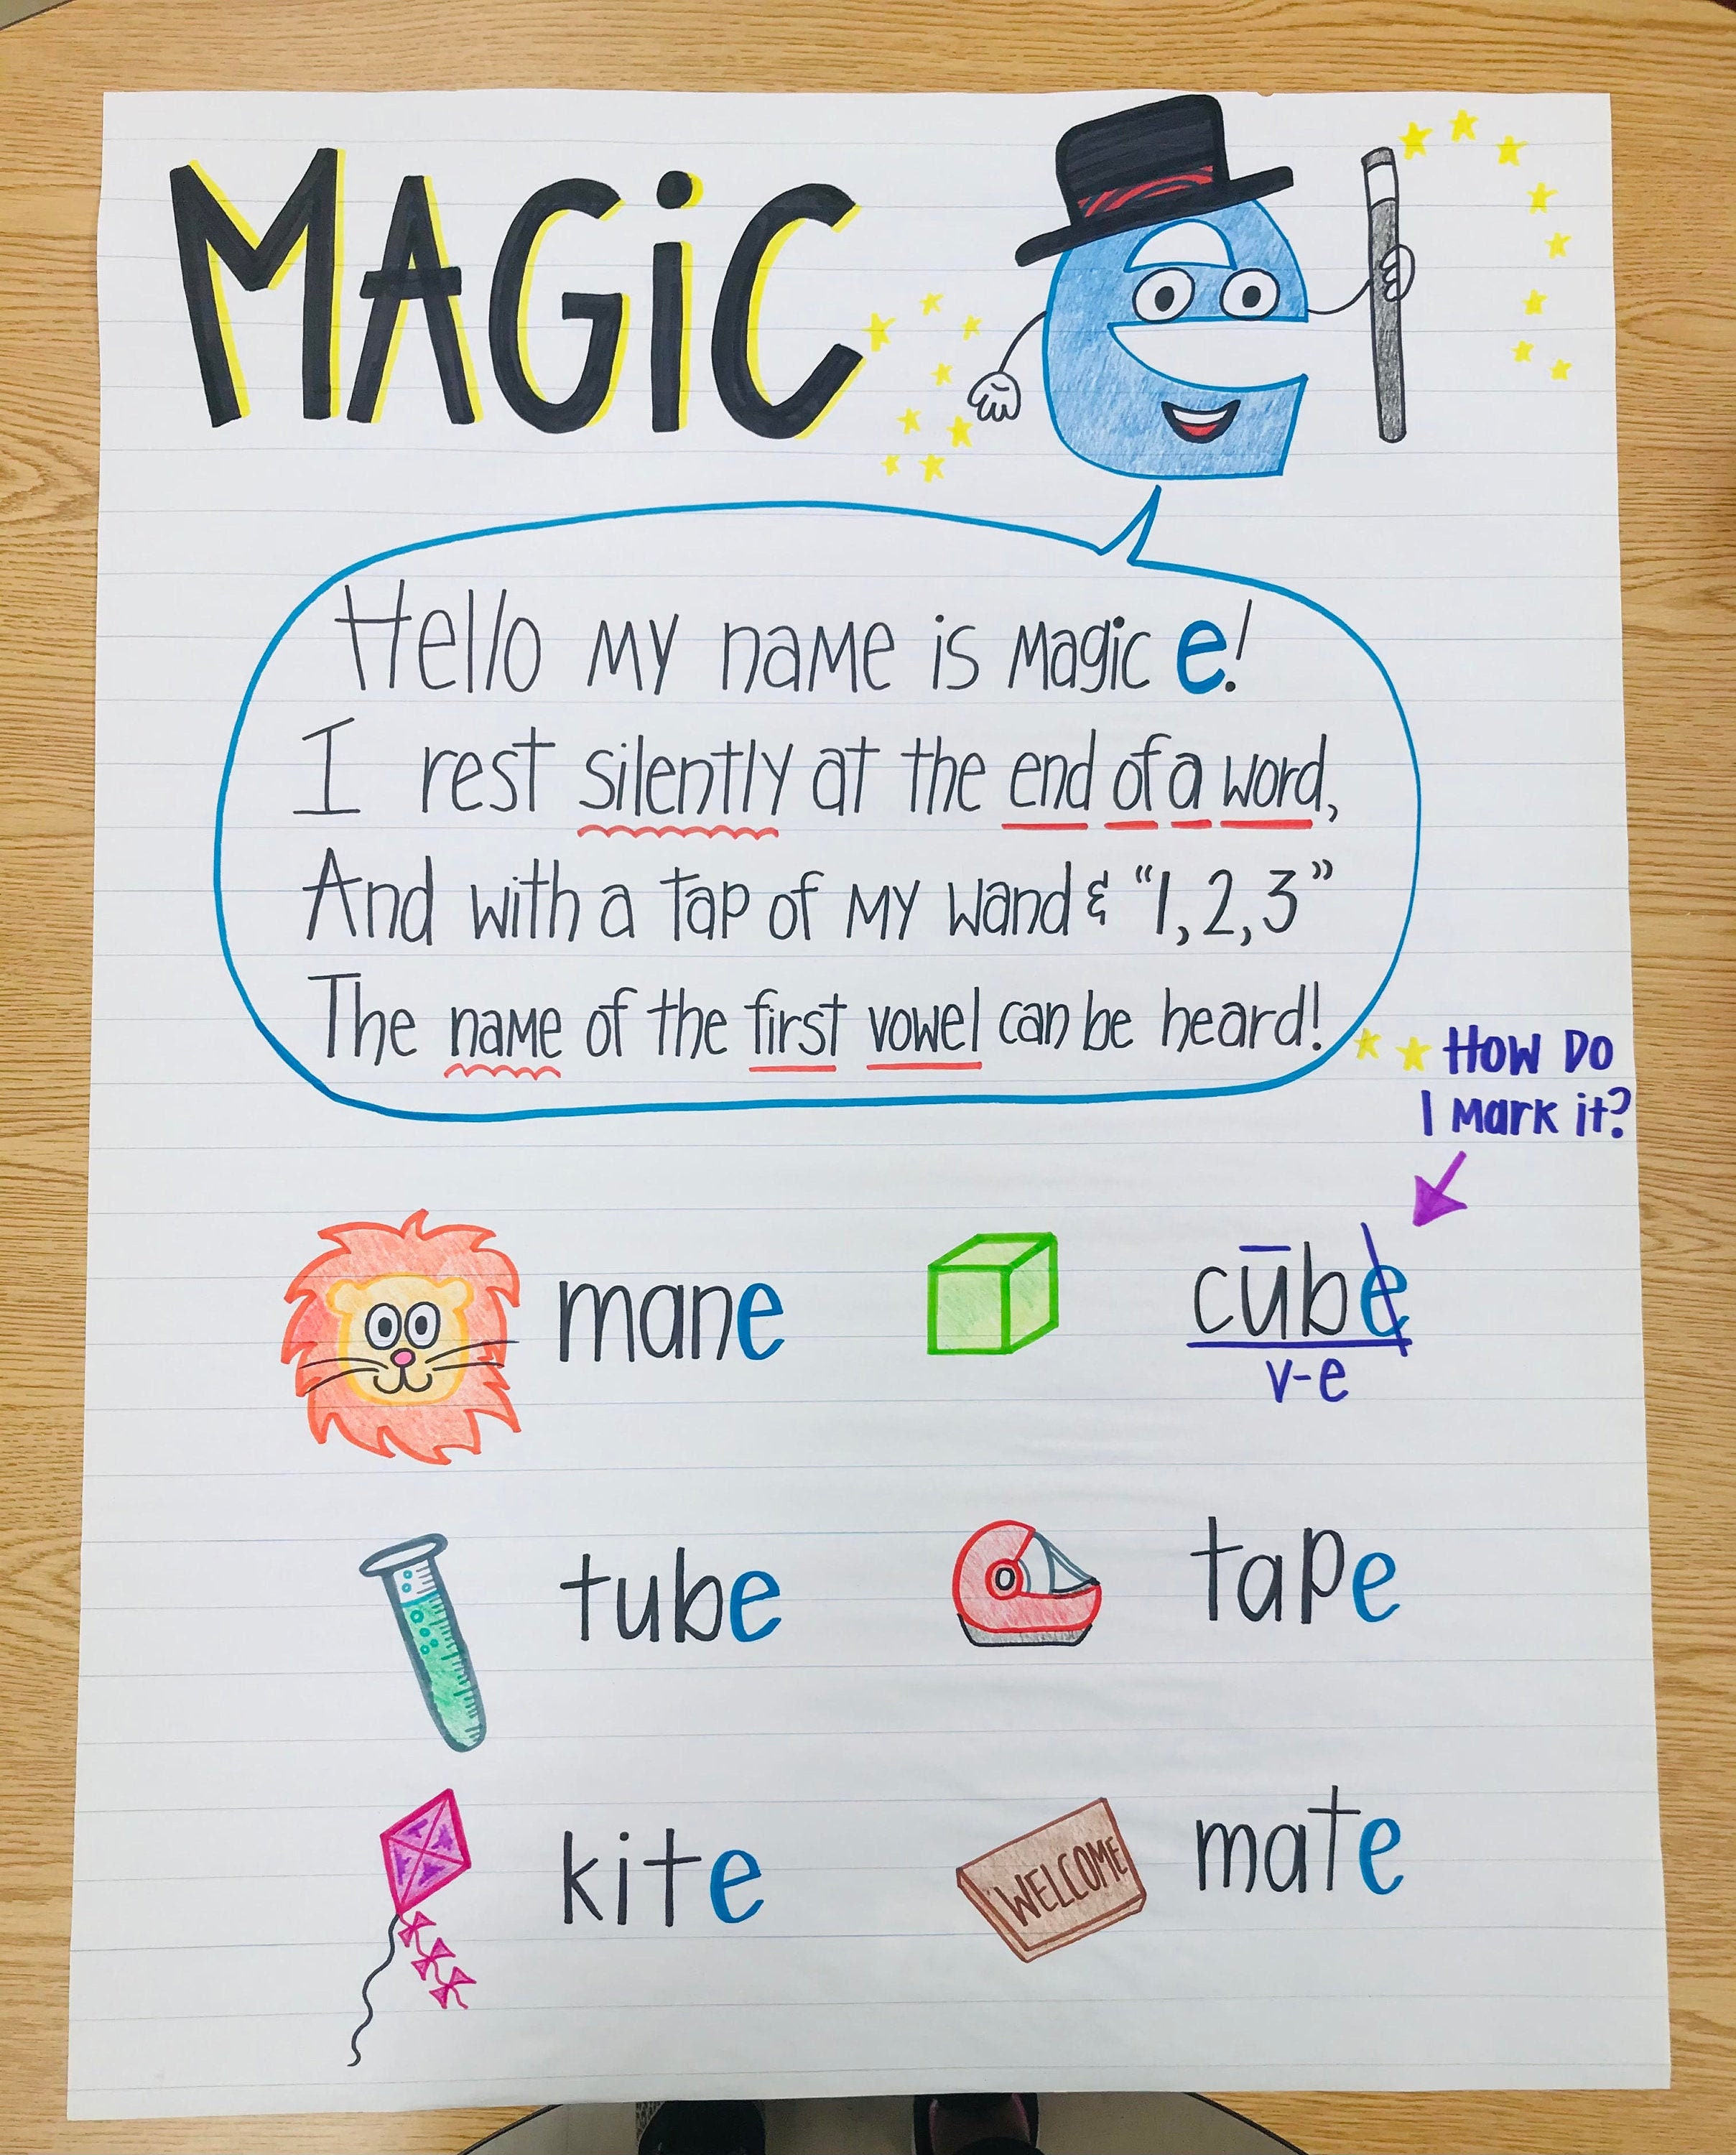 MAGiC e
Hello my name is Magic e!
I rest silently at the end of a word,
And with a tap of my wand & “1, 2, 3”
The name of the first vowel can be heard!
How Do
I Mark it?
mane
cūbe
v-e
tube
tape
kite
WELCOME
mate